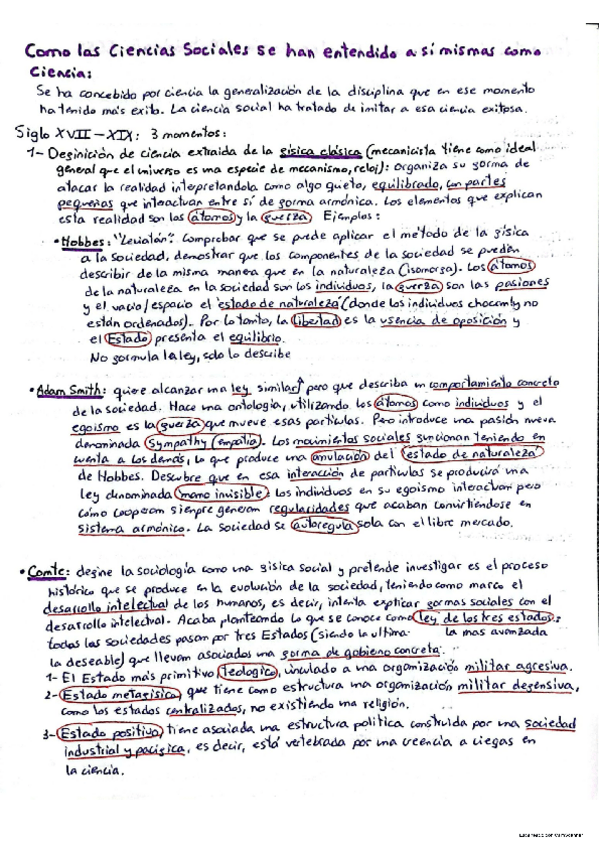 Como las Ciencias Sociales se han entendido a sí mismas como
Ciencia:
Se ha concebido por ciencia la generalización de la disciplina que en ese momento
ha tenido más exito. La ciencia social ha tratado de imitar a esa ciencia exitosa.
Siglo XVII-XIX: 3 momentos:
1- Definición de ciencia extraida de la física clásica (mecanicista tiene como ideal
general que el universo es una especie de mecanismo, reloj): organiza su forma de
atacar la realidad interpretandola como algo quieto, equilibrado, con partes
pequeños que interactuan entre sí de forma armónica. Los elementos que explican
esta realidad son los átomos y la fuerza Ejemplos:
• Hobbes: "Leviatón". Comprobar que se puede aplicar el método de la física
a la sociedad, demostrar que los componentes de la sociedad se pueden
describir de la misma manera que en la naturaleza (isomorfa). Los átomos
de la naturaleza en la sociedad son los individuos, la fuerza son las pasiones
y el vacio/espacio el "estado de naturaleza" (donde los individuos chocan y no
están ordenados). Por lo tanto, la libertad es la usencia de oposición y
el Estado presenta el equilibrio.
No formula la ley, solo lo describe
• Adam Smith: quiere alcanzar una ley similar, pero que describa un comportamiento concreto
de la sociedad. Hace una ontología, utilizando los átomos como individuos y el
egoismo es la fuerza que mueve esas partículas. Pero introduce una pasión nueva
denominada Sympathy (empatía). Los movimientos sociales funcionan teniendo en
cuenta a los demás, lo que produce una anulación del "estado de naturaleza"
de Hobbes. Descubre que en esa interacción de partículas se producirá una
ley denominada mano invisible: los individuos en su egoismo interactuan pero
cómo cooperan siempre generan regularidades que acaban convirtiendose en
sistema armónico. La sociedad se autoregula sola con el libre mercado.
• Comte: define la sociología como una física social y pretende investigar es el proceso
histórico que se produce en la evolución de la sociedad, teniendo como marco el
desarrollo intelectual de los humanos, es decir, intenta explicar formas sociales con el
desarrollo intelectual. Acaba planteando lo que se conoce como ley de los tres estados:
todas las sociedades pasan por tres Estados (siendo la ultima la mas avanzada
la deseable) que llevan asociados una forma de gobieno concreta.
1- El Estado más primitivo teologico, vinculado a una organización militar agresiva.
2- Estado metafísica, que tiene como estructura una organización militar defensiva,
como los estados centralizados, no existiendo una religión.
3- Estado positivo, tiene asociada una estructura política construida por una sociedad
industrial y pacífica, es decir, está vertebrada por una creencia a ciegas en
la ciencia.